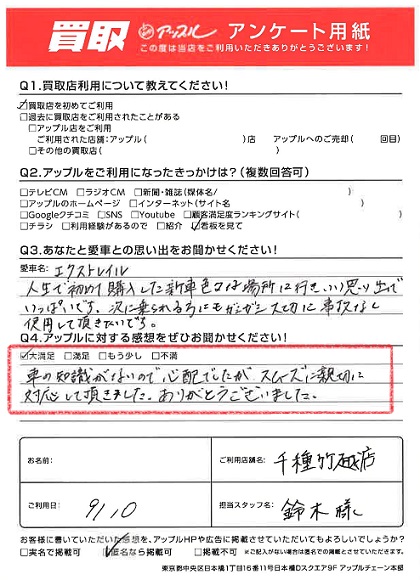 買取 アップル アンケート用紙
この度は当店をご利用いただきありがとうございます!
Q1.買取店利用について教えてください!
☑買取店を初めてご利用
□過去に買取店をご利用されたことがある
□アップル店をご利用
ご利用された店舗:アップル( )店 アップルへのご売却( 回目)
□その他の買取店( )
Q2.アップルをご利用になったきっかけは?(複数回答可)
□テレビCM □ラジオCM □新聞・雑誌(媒体名/ )
□アップルのホームページ □インターネット(サイト名 )
□Googleクチコミ □SNS □Youtube □顧客満足度ランキングサイト( )
□チラシ □利用経験があるので □紹介 ☑看板を見て
Q3.あなたと愛車との思い出をお聞かせください!
愛車名: エクストレイル
人生で初めて購入した新車色々な場所に行き、いい思い出で
いっぱいです。次に乗られる方にもガシガシ大切に事故なし
使用して頂きたいです。
Q4.アップルに対する感想をぜひお聞かせください!
☑大満足 □満足 □もう少し □不満
車の知識がないので心配でしたがスムーズに親切に
対応して頂きました。ありがとうございました。
お名前:
ご利用店舗名: 千種竹越店
ご利用日: 9/10
担当スタッフ名: 鈴木様
お客様に書いていただいた感想を、アップルHPや広告に掲載させていただいてもよろしいでしょうか?
□実名で掲載可 ☑匿名なら掲載可 □掲載不可 ※ご記入がない場合は匿名での掲載とさせていただきます。
東京都中央区日本橋1丁目16番11号日本橋Dスクエア9F アップルチェーン本部